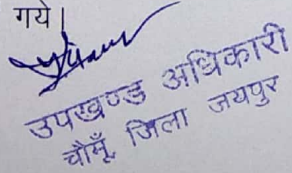 गये।
उपखण्ड अधिकारी
चौमूँ, जिला जयपुर